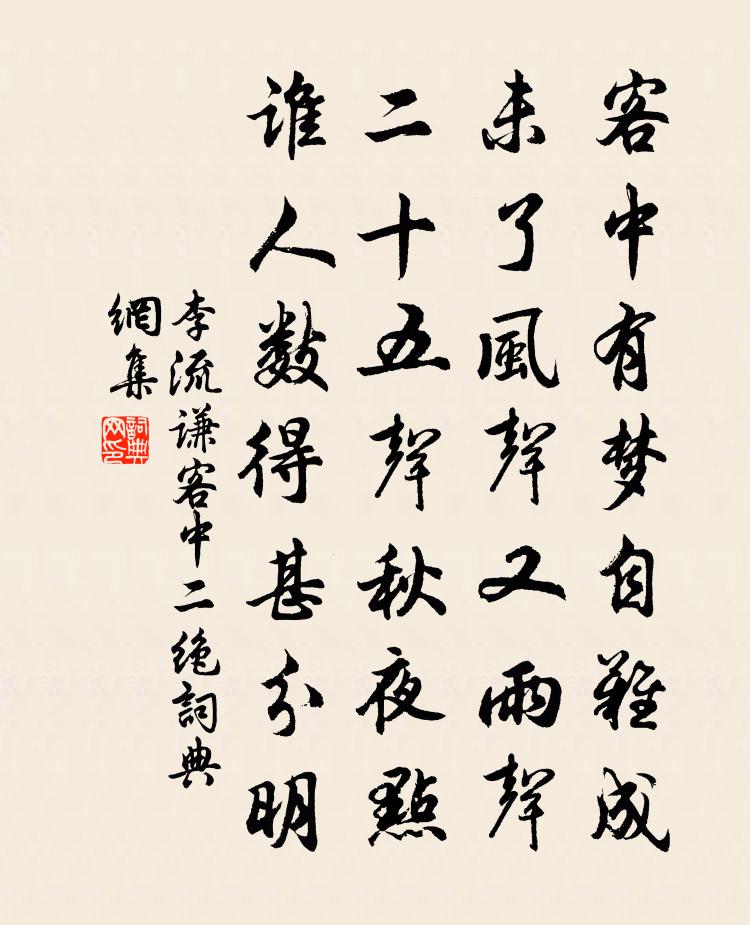 客中有梦自難成
未了風聲又雨聲
二十五聲秋夜點
誰人数得甚分明
李流谦客中二绝詞典
網集
詞典
网印